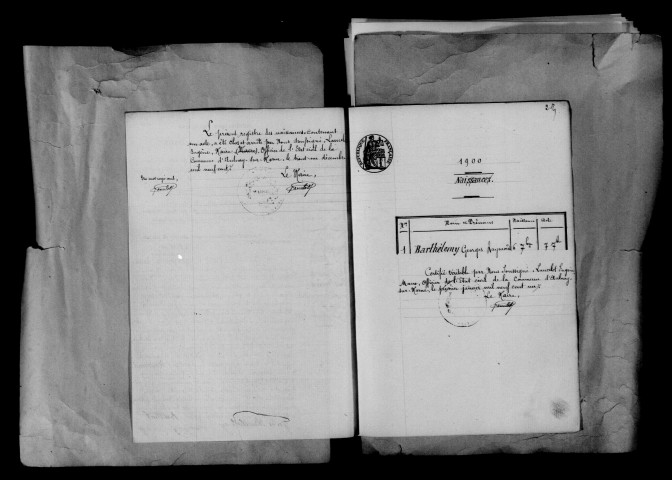 Le présent registre des naissances contenant
un acte, a été clos et arrêté par Nous soussigné, Lancelot
Eugène, Maire, Officier de l'Etat civil de la
Commune d'Aulnay-sur-Marne, le trente-un décembre
mil neuf cent.
Le Maire,
1900
Naissances.
Nos Noms et Prénoms Naissance Acte
1 Barthélemy Georges 7 7
Certifié véritable par Nous soussigné, Lancelot Eugène
Maire, Officier de l'Etat civil de la Commune d'Aulnay
sur-Marne, le premier janvier mil neuf cent un.
Le Maire,